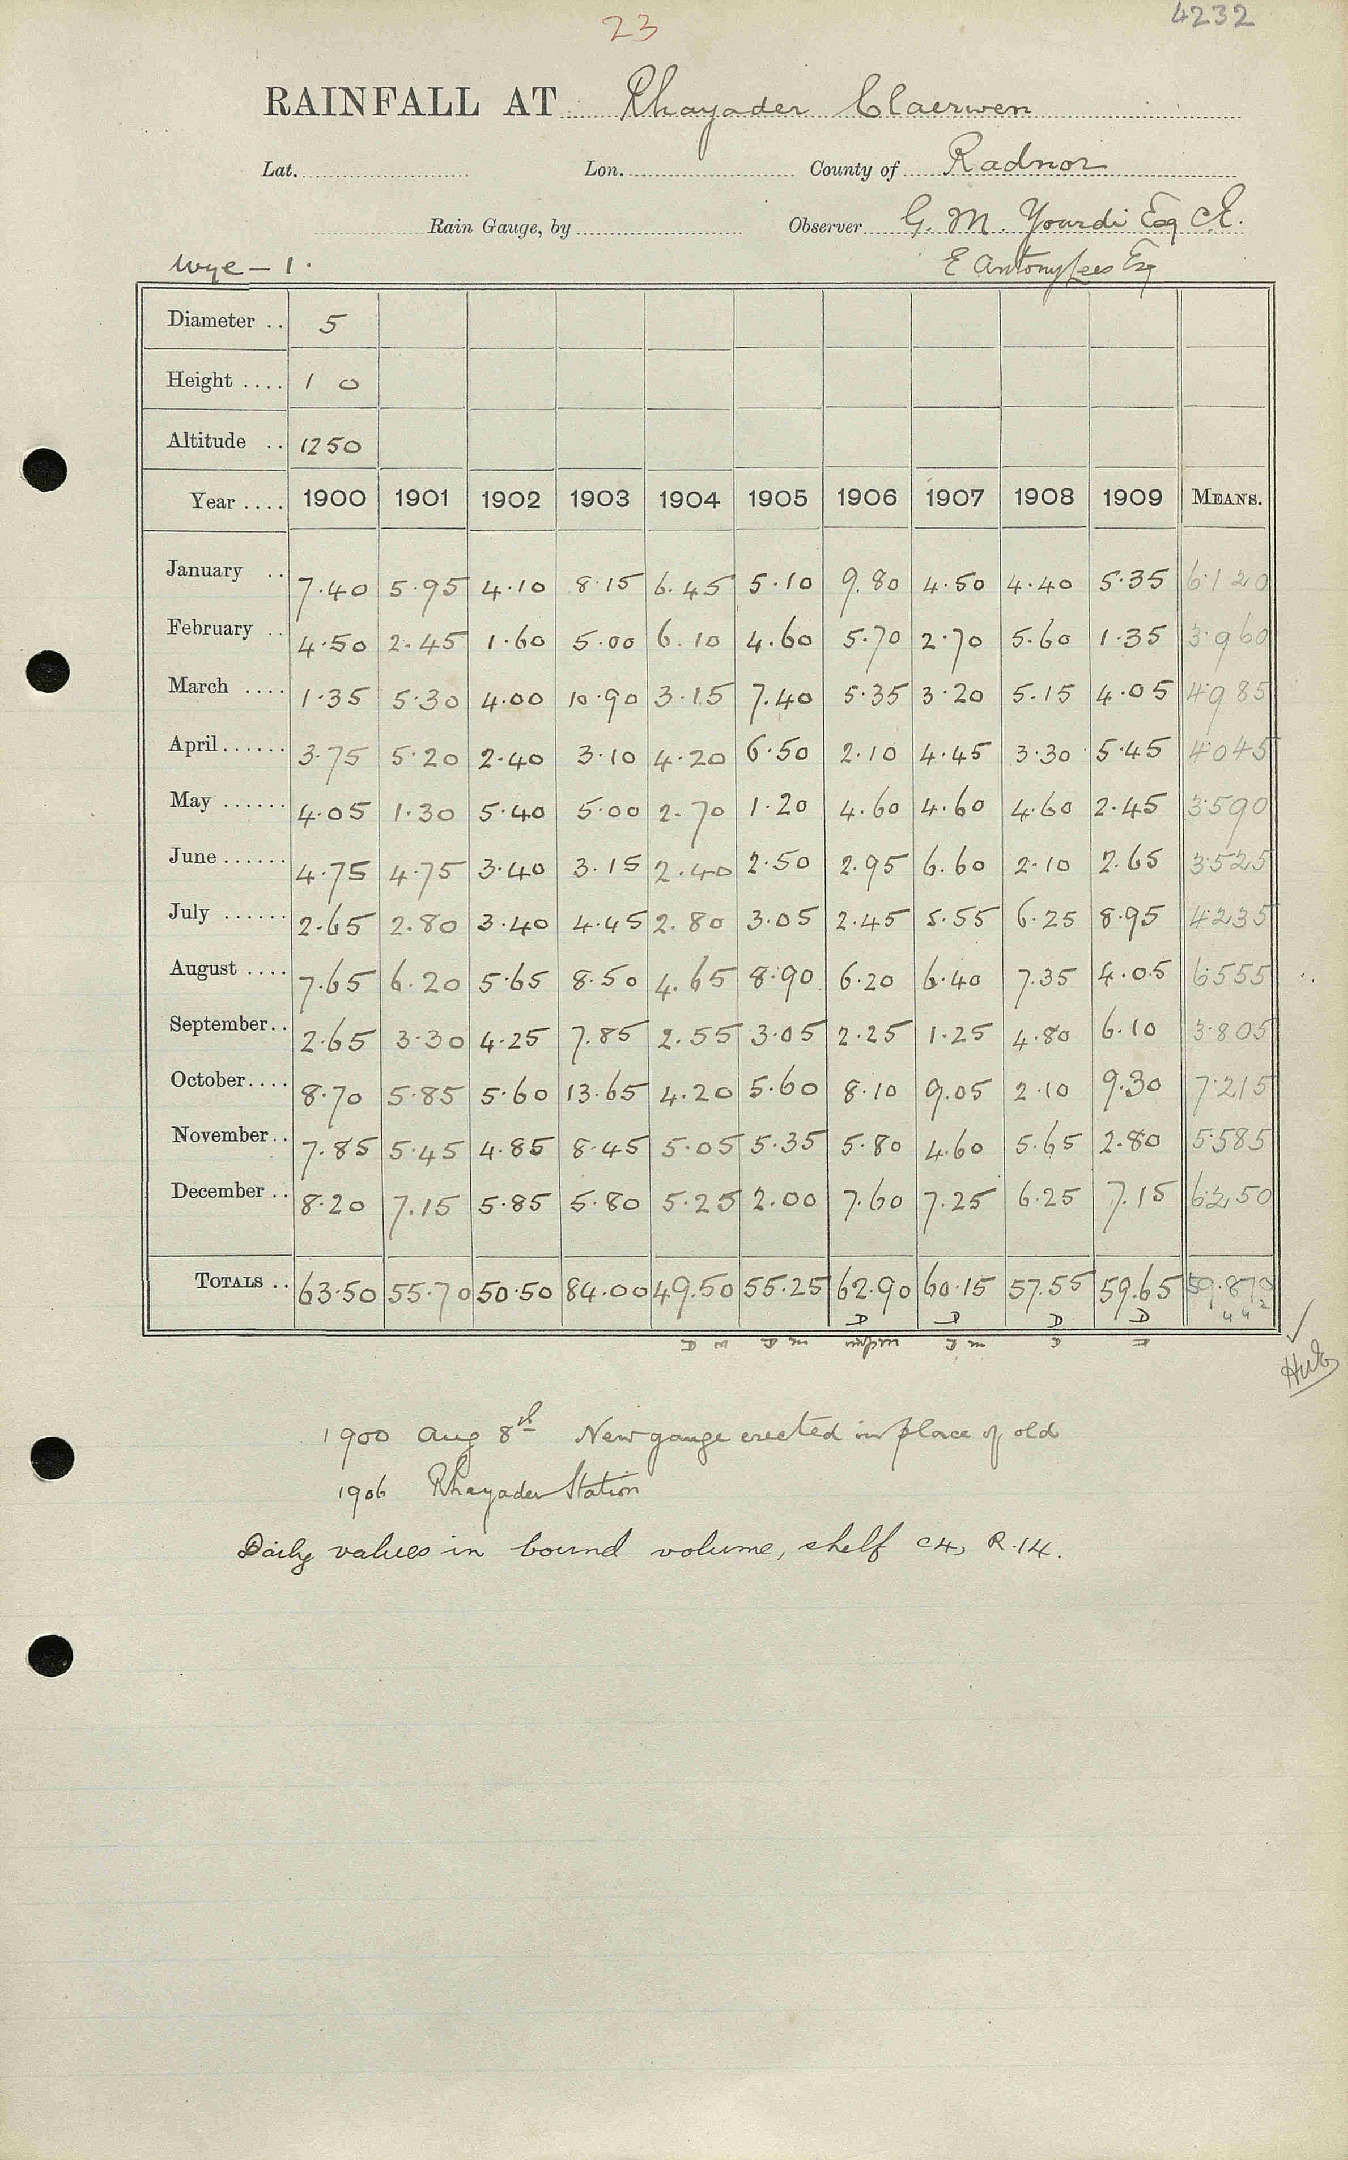 23 4232
RAINFALL AT Rhayader Claerwen
Lat. Lon. County of Radnor
Rain Gauge, by Observer G. M. Yourdi Esq C.E.
Wye - 1. E Antony Lees Esq
Diameter .. 5
Height .... 1 0
Altitude .. 1250
Year .... 1900 1901 1902 1903 1904 1905 1906 1907 1908 1909 MEANS.
January .. 7.40 5.95 4.10 8.15 6.45 5.10 9.80 4.50 4.40 5.35 6.120
February .. 4.50 2.45 1.60 5.00 6.10 4.60 5.70 2.70 5.60 1.35 3.960
March .... 1.35 5.30 4.00 10.90 3.15 7.40 5.35 3.20 5.15 4.05 4.985
April...... 3.75 5.20 2.40 3.10 4.20 6.50 2.10 4.45 3.30 5.45 4.045
May ...... 4.05 1.30 5.40 5.00 2.70 1.20 4.60 4.60 4.60 2.45 3.590
June ...... 4.75 4.75 3.40 3.15 2.40 2.50 2.95 6.60 2.10 2.65 3.525
July ...... 2.65 2.80 3.40 4.45 2.80 3.05 2.45 5.55 6.25 8.95 4.235
August .... 7.65 6.20 5.65 8.50 4.65 8.90 6.20 6.40 7.35 4.05 6.555
September.. 2.65 3.30 4.25 7.85 2.55 3.05 2.25 1.25 4.80 6.10 3.805
October.... 8.70 5.85 5.60 13.65 4.20 5.60 8.10 9.05 2.10 9.30 7.215
November.. 7.85 5.45 4.85 8.45 5.05 5.35 5.80 4.60 5.65 2.80 5.585
December .. 8.20 7.15 5.85 5.80 5.25 2.00 7.60 7.25 6.25 7.15 6.250
TOTALS .. 63.50 55.70 50.50 84.00 49.50 55.25 62.90 60.15 57.55 59.65 59.870
D D D D
1900 Aug 8th New gauge erected in place of old
1906 Rhayader Station
Daily values in bound volume, shelf C4, R.14.